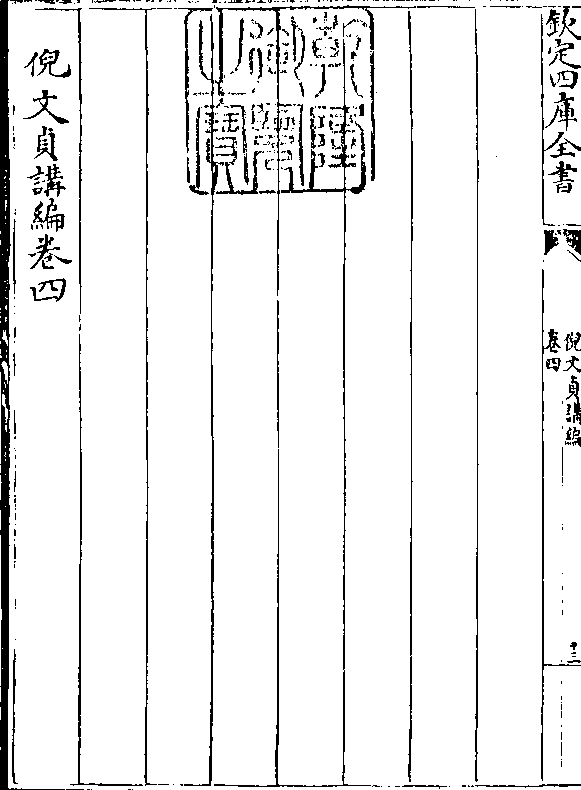 欽定四庫全書
倪文貞講編
卷四
十三
乾隆御覽之寶
倪文貞講編卷四